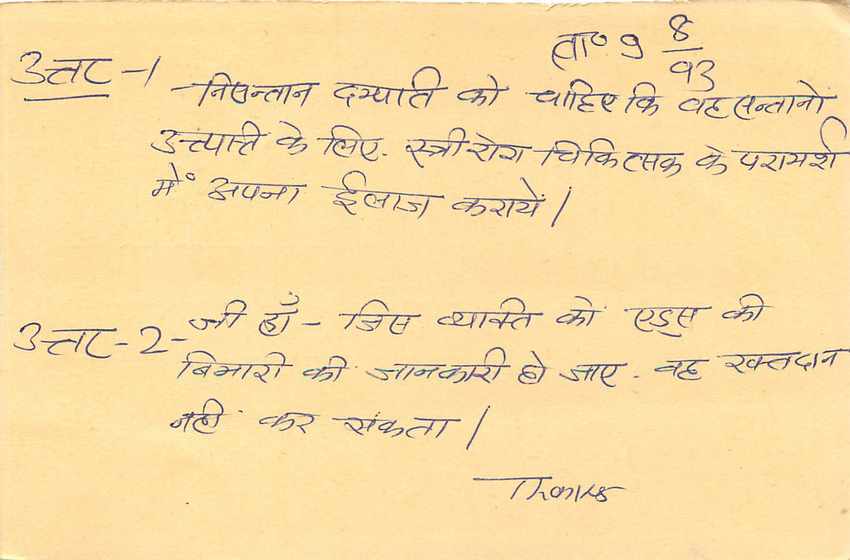 ता० 9 8/93
उत्तर -1
निसन्तान दम्पति को चाहिए कि वह सन्तानो
उत्पत्ति के लिए. स्त्री रोग चिकित्सक के परामर्श
में अपना ईलाज करायें।
उत्तर - 2 - जी हाँ - जिस व्यक्ति को एड्स की
बिमारी की जानकारी हो जाए. वह रक्तदान
नही कर सकता।
Thanks